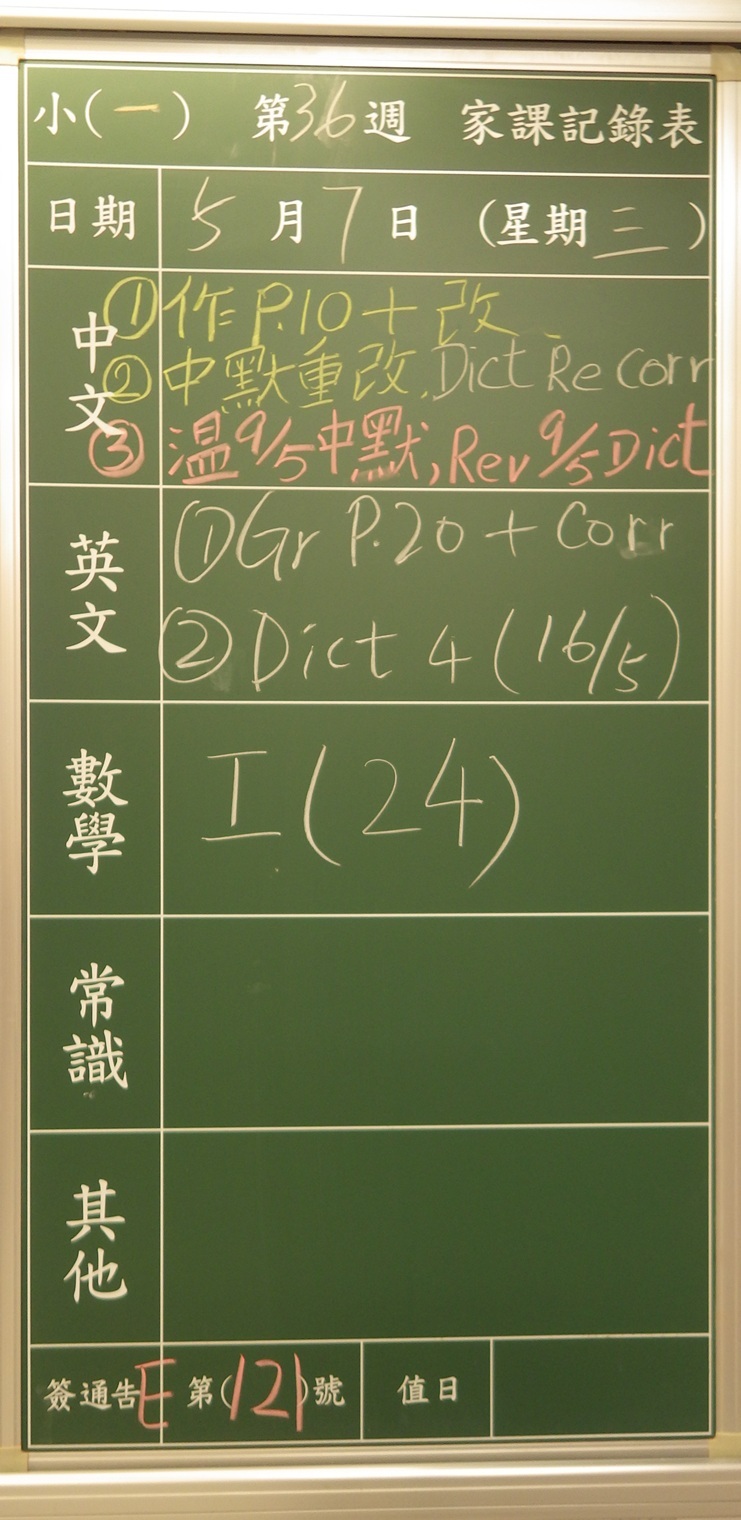 小(一) 第36週 家課記錄表
日期 5月7日 (星期三)
中文
①作P.10+改
②中默重改,Dict Re Corr
③溫9/5中默,Rev 9/5 Dict
英文
①Gr P.20 + Corr
②Dict 4 (16/5)
數學
I(24)
常識
其他
簽通告E 第(121)號 值日